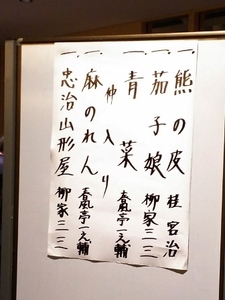 一、熊の皮 桂宮治
一、茄子娘 柳家三三
一、青菜 春風亭一之輔
仲入り
一、麻のれん 春風亭一之輔
一、忠治山形屋 柳家三三